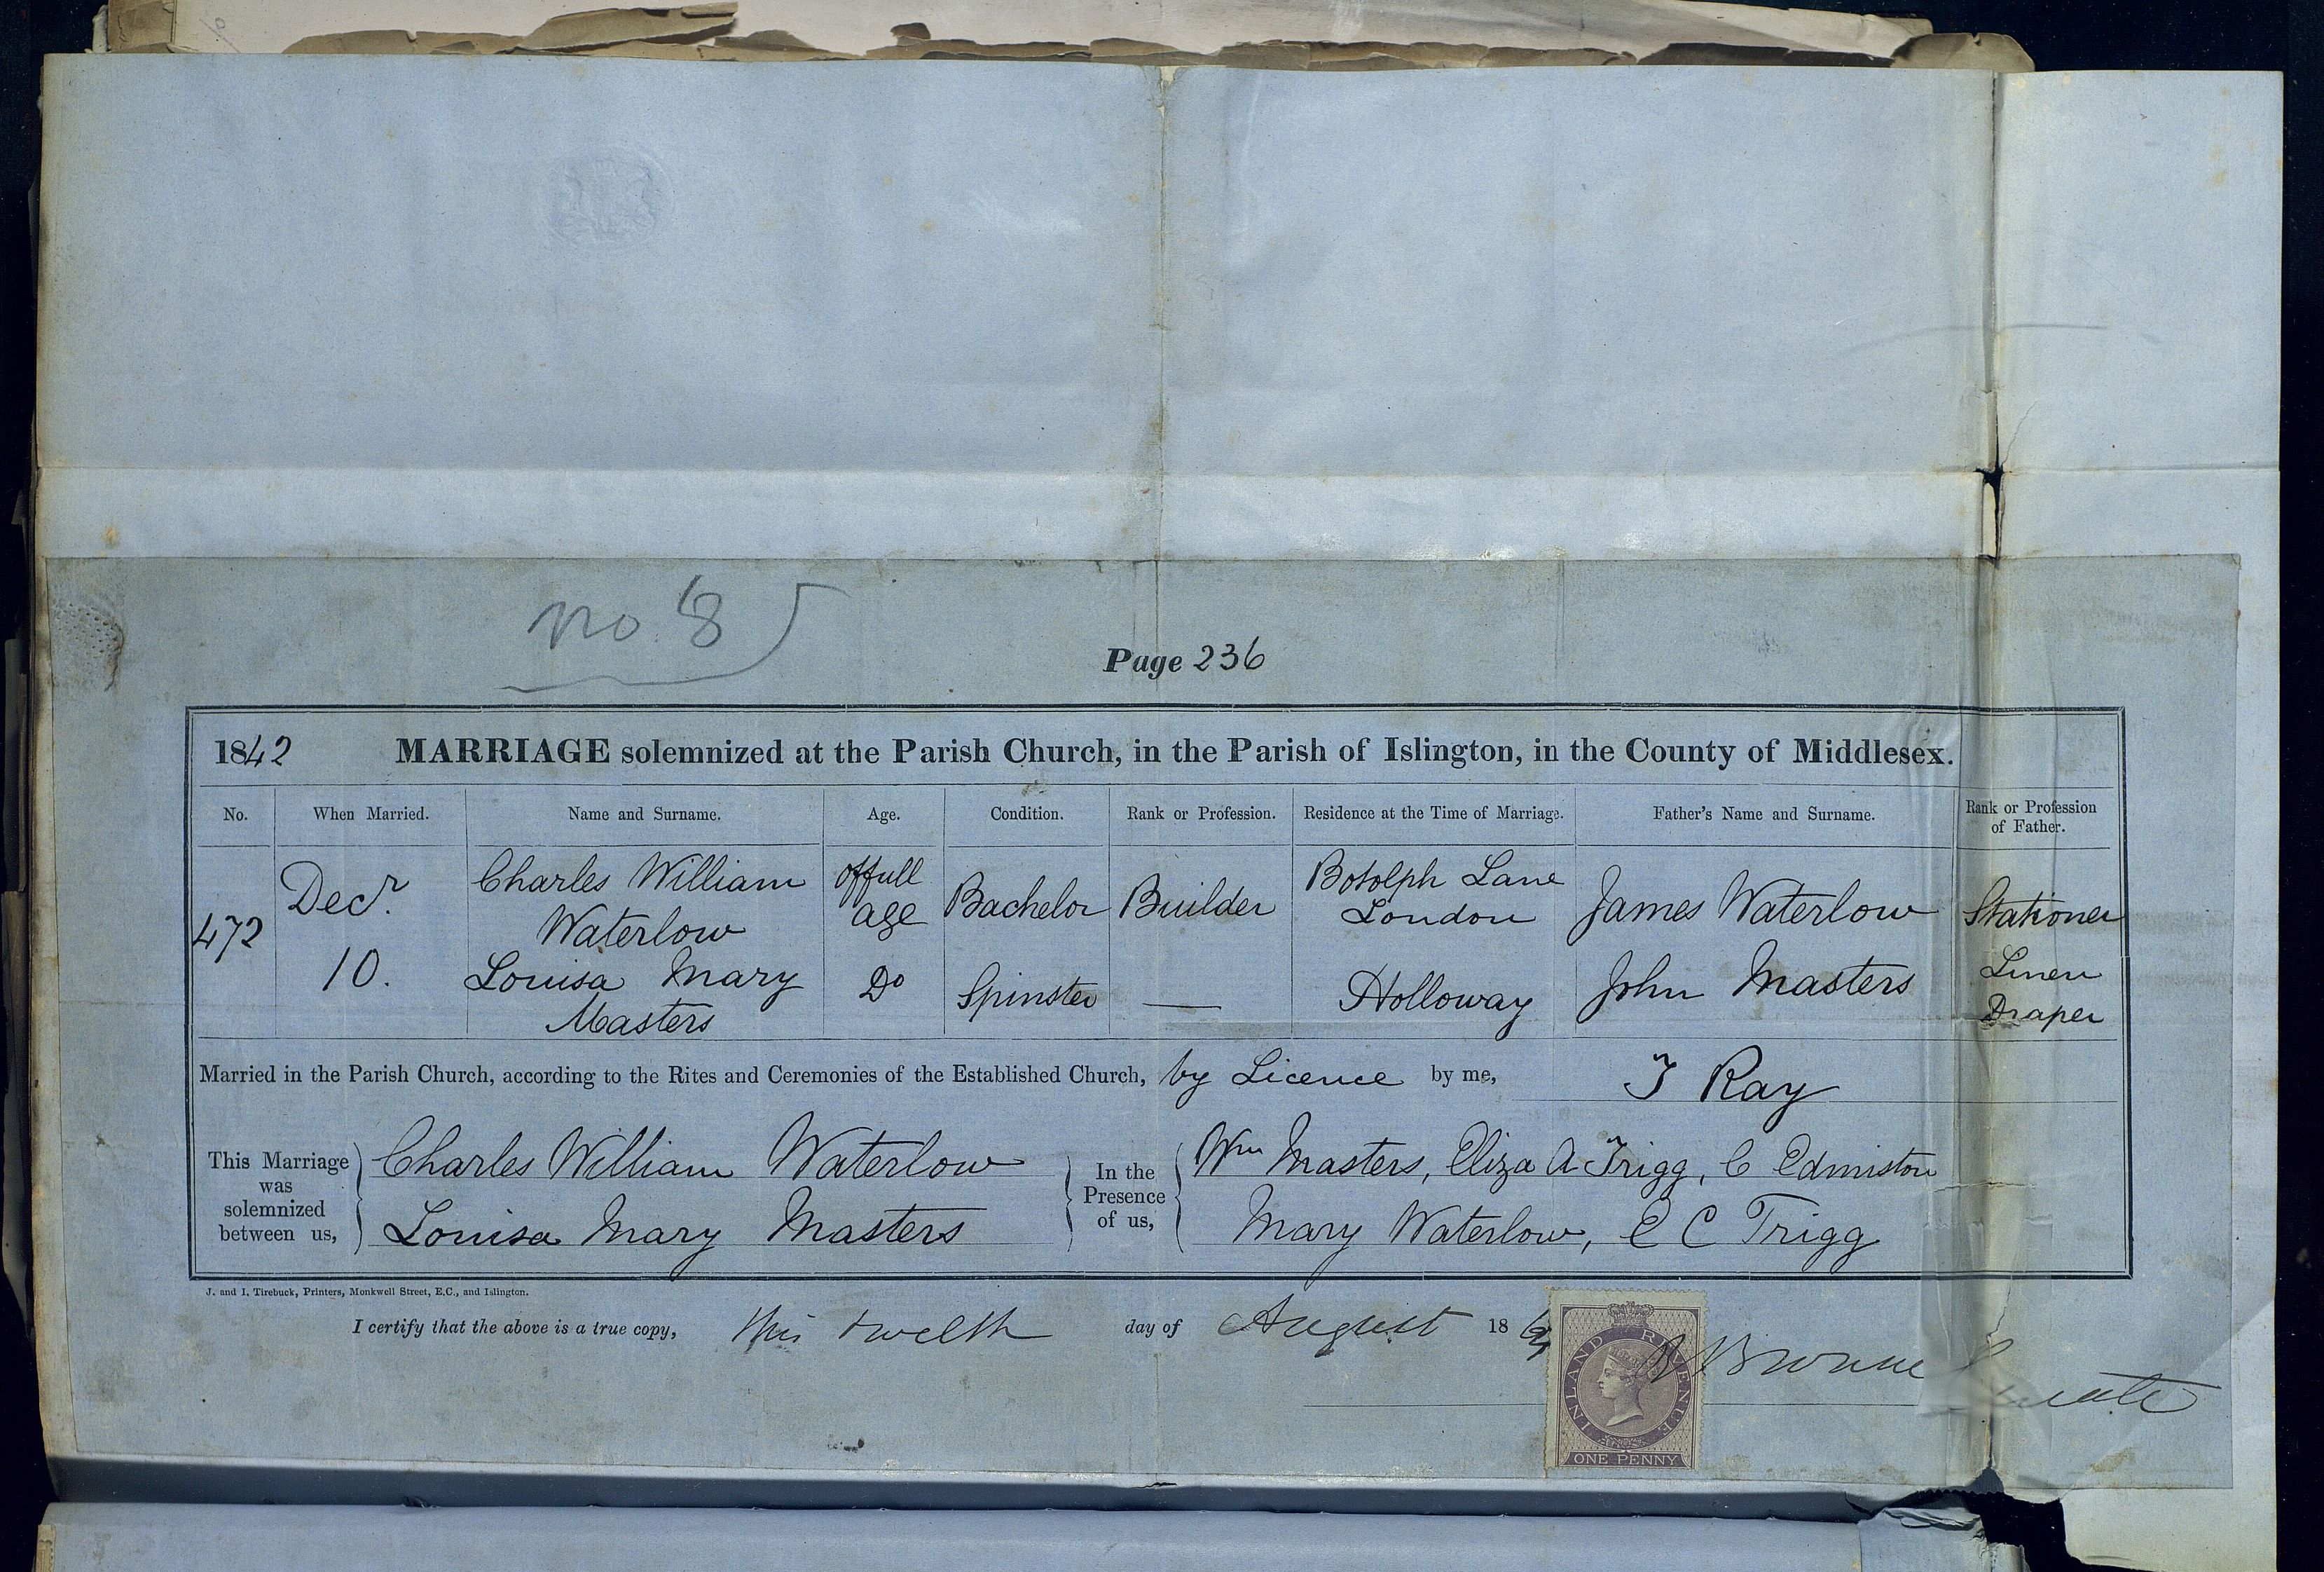 no 8
Page 236
1842 MARRIAGE solemnized at the Parish Church, in the Parish of Islington, in the County of Middlesex.
No. When Married. Name and Surname. Age. Condition. Rank or Profession. Residence at the Time of Marriage. Father's Name and Surname. Rank or Profession of Father.
472 Decr. 10. Charles William Waterlow of full age Bachelor Builder Botolph Lane London James Waterlow Stationer
Louisa Mary Masters Do Spinster — Holloway John Masters Linen Draper
Married in the Parish Church, according to the Rites and Ceremonies of the Established Church, by Licence by me, T Ray
This Marriage was solemnized between us, Charles William Waterlow
Louisa Mary Masters
In the Presence of us, Wm Masters, Eliza A Trigg, C Edmiston
Mary Waterlow, E C Trigg
J. and I. Tirebuck, Printers, Monkwell Street, E.C., and Islington.
I certify that the above is a true copy, this twelth day of August 18
Browne
INLAND REVENUE
ONE PENNY